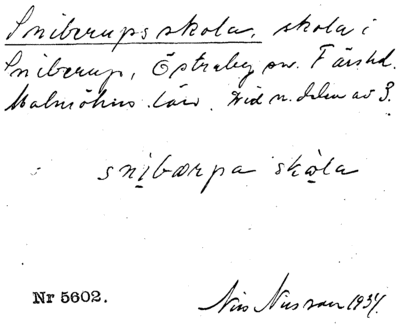 Sniberups skola, skola i
Sniberup, Östraby sn. Färs hd.
Malmöhus län. Vid n. delen av S.
snibærpa skòla
Nr 5602.
Nils Nilsson 1934.